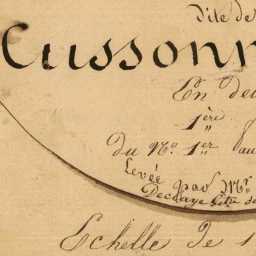 dite de
Cussonn
En deu
1ère
du No. 1er au
Levée par Mr
Echelle de 1